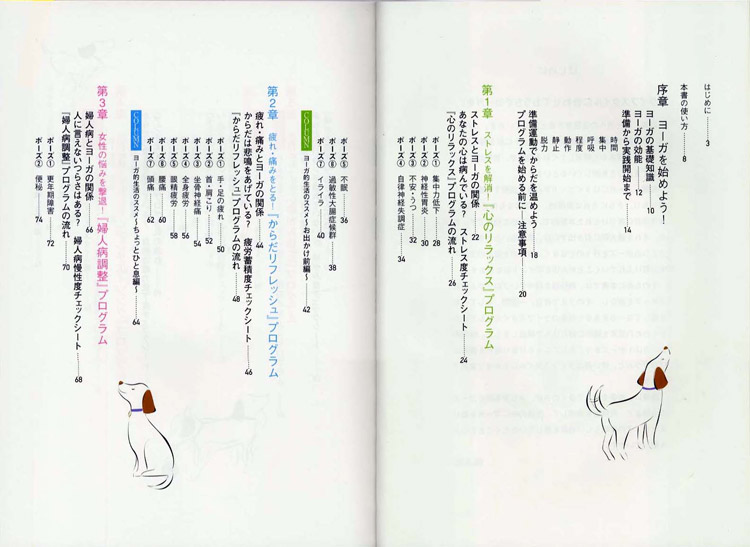 はじめに……3
本書の使い方……8
序章 ヨーガを始めよう！
ヨーガの基礎知識……10
ヨーガの効能……12
準備から実践開始まで……14
時間
集中
呼吸
程度
動作
静止
脱力
準備運動でからだを温めよう……18
プログラムを始める前に 注意事項……20
第1章 ストレスを解消！『心のリラックス』プログラム
ストレスとヨーガの関係……22
あなたの心は病んでいる？ ストレス度チェックシート……24
『心のリラックス』プログラムの流れ……26
ポーズ① 集中力低下……28
ポーズ② 神経性胃炎……30
ポーズ③ 不安・うつ……32
ポーズ④ 自律神経失調症……34
ポーズ⑤ 不眠……36
ポーズ⑥ 過敏性大腸症候群……38
ポーズ⑦ イライラ……40
COLUMN ヨーガ的生活のススメ〜お出かけ前編〜……42
第2章 疲れ・痛みをとる！『からだリフレッシュ』プログラム
疲れ・痛みとヨーガの関係……44
からだは悲鳴をあげている？ 疲労蓄積度チェックシート……46
『からだリフレッシュ』プログラムの流れ……48
ポーズ① 手・足の疲れ……50
ポーズ② 首・肩こり……52
ポーズ③ 坐骨神経痛……54
ポーズ④ 全身疲労……56
ポーズ⑤ 眼精疲労……58
ポーズ⑥ 腰痛……60
ポーズ⑦ 頭痛……62
COLUMN ヨーガ的生活のススメ〜ちょっとひと息編〜……64
第3章 女性の悩みを撃退！『婦人病調整』プログラム
婦人病とヨーガの関係……66
人に言えないつらさはある？ 婦人病慢性度チェックシート……68
『婦人病調整』プログラムの流れ……70
ポーズ① 更年期障害……72
ポーズ② 便秘……74